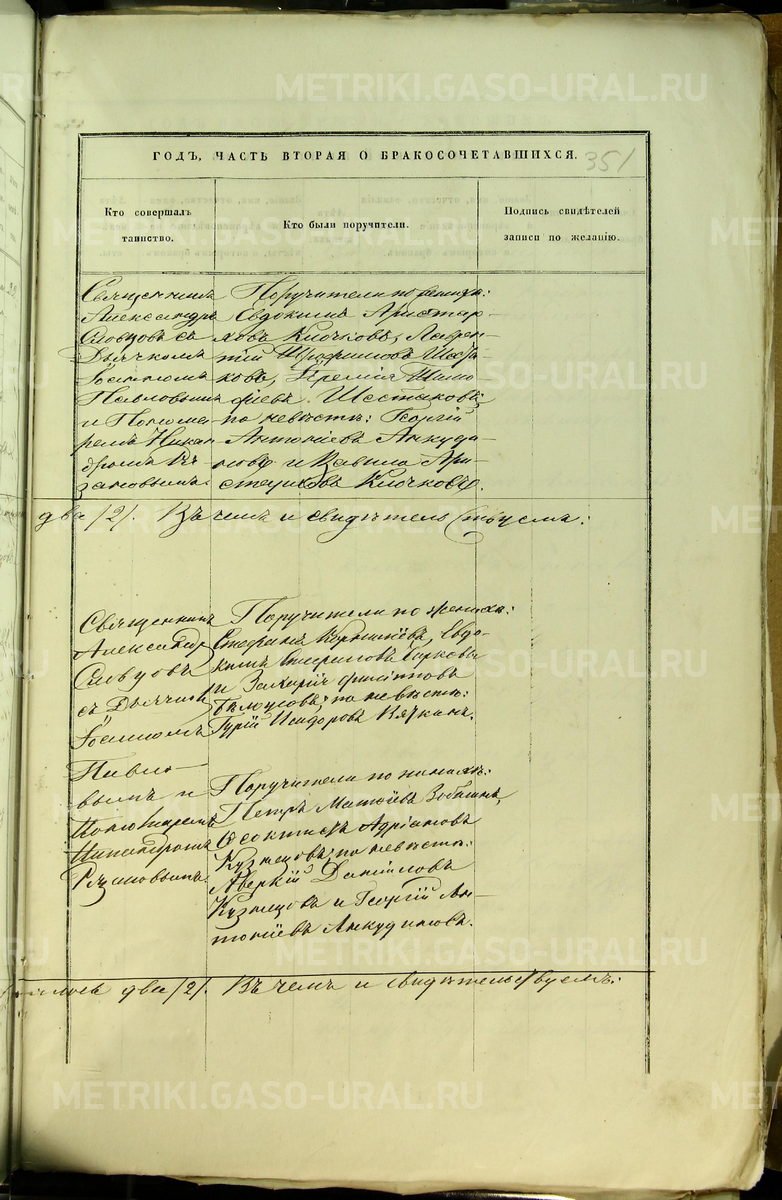 METRIKI.GASO-URAL.RU
ГОДЪ, ЧАСТЬ ВТОРАЯ О БРАКОСОЧЕТАВШИХСЯ.
351
Кто совершалъ
таинство.
Кто были поручители.
Подпись свидѣтелей
записи по желанію.
Священникъ
Александръ
Словцовъ съ
Дьячкомъ
Іоанномъ
Павловымъ
и Поноma-
ремъ Никан
дромъ Ря-
зановымъ
Поручители по женихѣ:
Евдокимъ Аристар-
ховъ Клочковъ, Лаврен-
тій Шеста-
ковъ, Еремія
Шестаковъ;
по невѣстѣ: Георгій
Антоніевъ Анкуди-
новъ и Вавило Ари-
старховъ Клочковъ.
два /2/. Въ чемъ и свидѣтельствуемъ:
Священникъ
Александръ
Словцовъ
съ Дьячкомъ
Іоанномъ
Павло-
вымъ и
Пономаремъ
Никандромъ
Рязановымъ
Поручители по женихѣ:
Стефанъ Евдо-
кимъ
и Захарій Филиповъ
Бѣлоусовъ; по невѣстѣ:
Гурій Исидоровъ Вяткинъ.
Поручители по женихѣ:
Петръ Матѳіевъ
Ѳеоктистъ Адріановъ
Кузнецовъ; по невѣстѣ:
Аверкій Даніиловъ
Кузнецовъ и Георгій Ан-
тоніевъ Анкудиновъ.
два /2/. Въ чемъ и свидѣтельствуемъ: